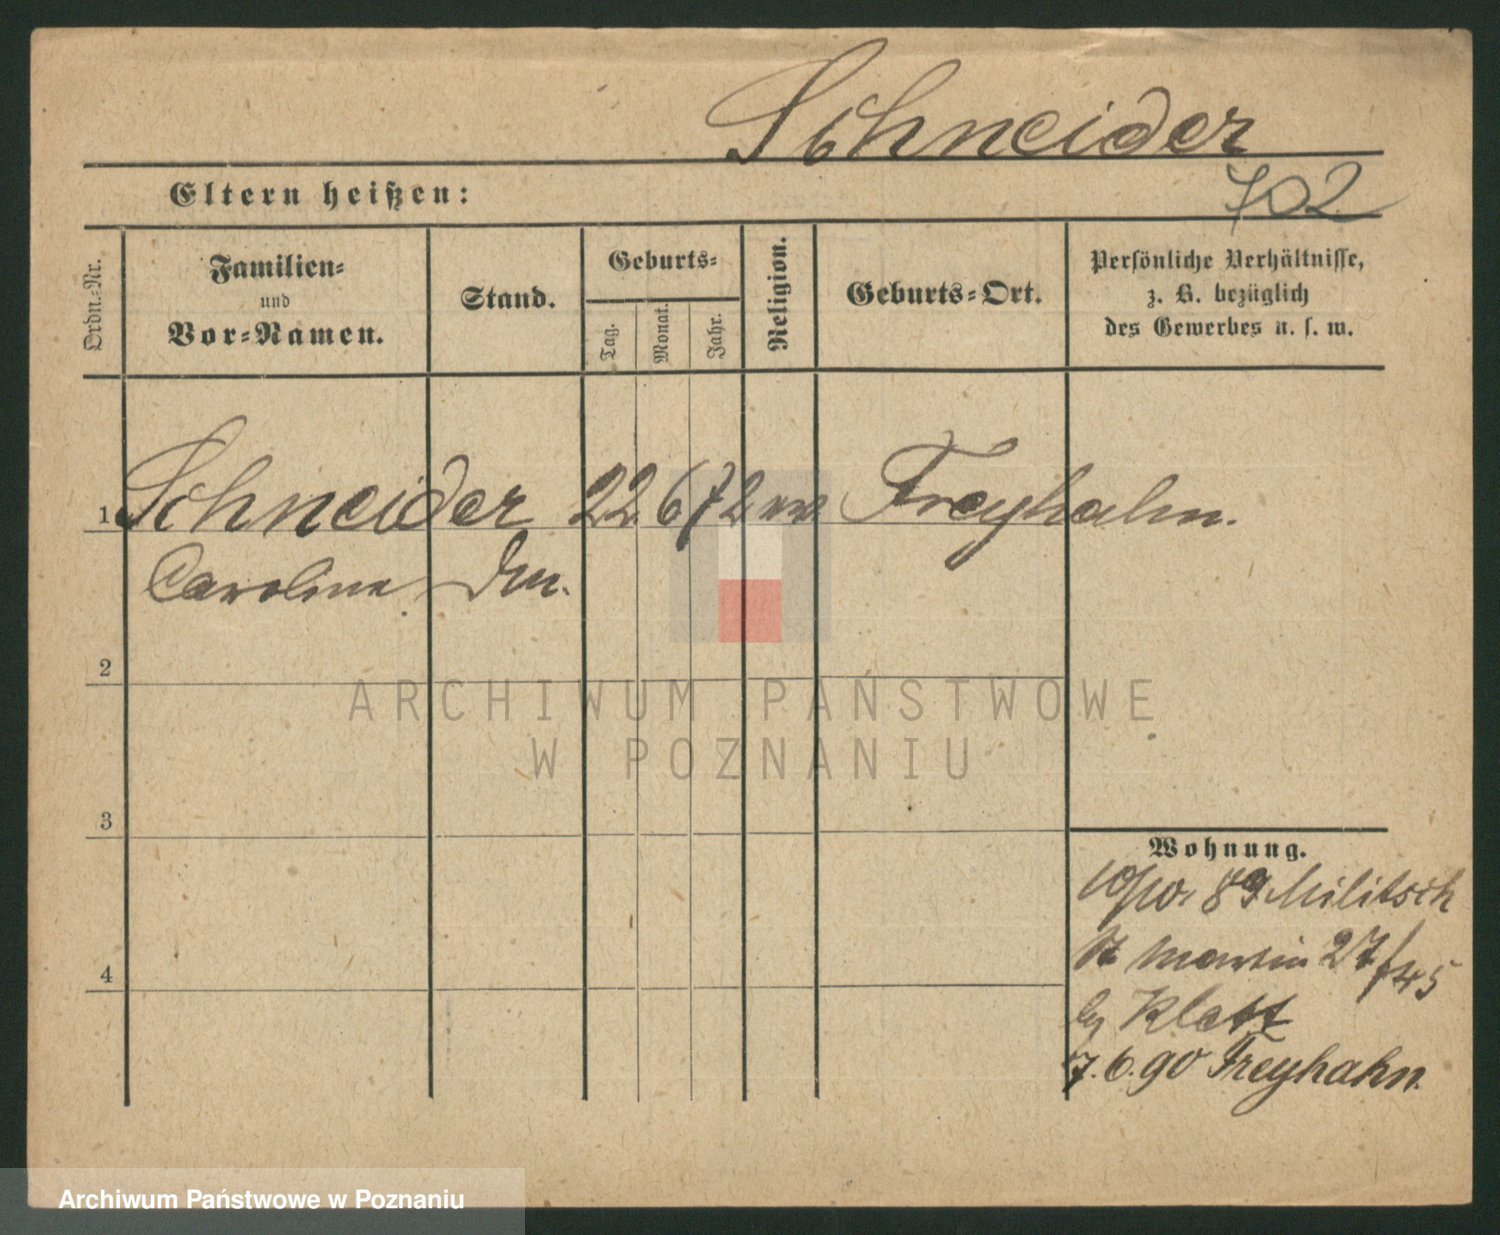 Schneider
702
Eltern heißen:
Ordn.-Nr.
Familien-
und
Vor-Namen.
Stand.
Geburts-
Tag.
Monat.
Jahr.
Religion.
Geburts-Ort.
Persönliche Verhältnisse,
z. B. bezüglich
des Gewerbes u. s. w.
1 Schneider 22 6 72 ev Freyhahn.
Caroline
2
3
4
Wohnung.
10/10. 89 Militsch
St Martin 27/45
Klatt
7.6.90 Freyhahn.
ARCHIWUM PAŃSTWOWE
W POZNANIU
Archiwum Państwowe w Poznaniu